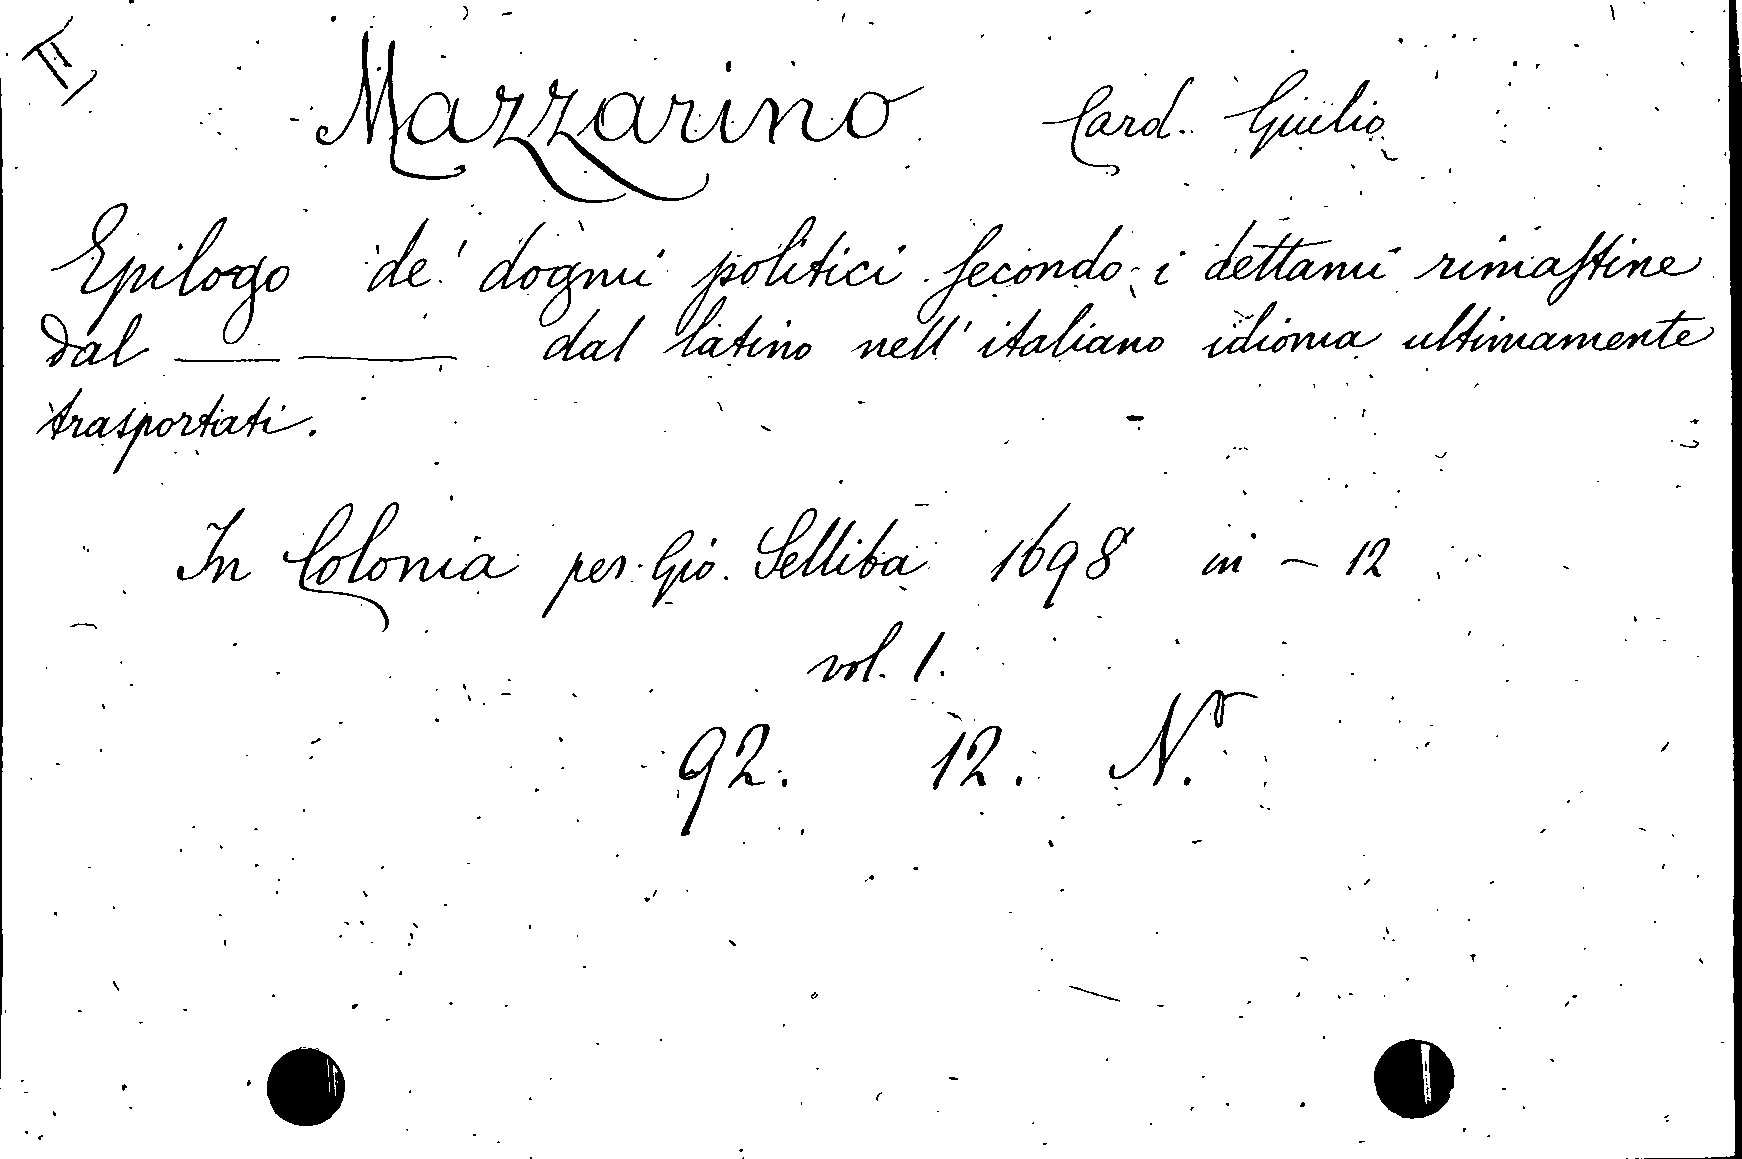 II
Mazzarino Card. Giulio
Epilogo de' dogmi politici secondo i dettami rimastine
dal ____ ____ dal latino nell' italiano idioma ultimamente
trasportati.
In Colonia per Gio. Selliba 1698 in - 12
vol. 1.
92. 12. N.º